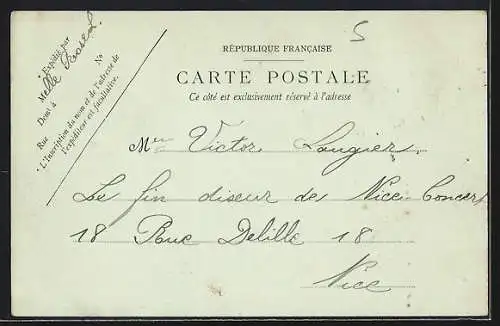 5
RÉPUBLIQUE FRANÇAISE
CARTE POSTALE
Ce côté est exclusivement réservé à l'adresse
* Expédié par
Melle
Dom t à
Rue No
* L'Inscription du nom et de l'adresse de
l'expéditeur est facultative.
Mr Victor Laugier.
Le fin diseur de Nice-Concert
18 Rue Delille 18
Nice